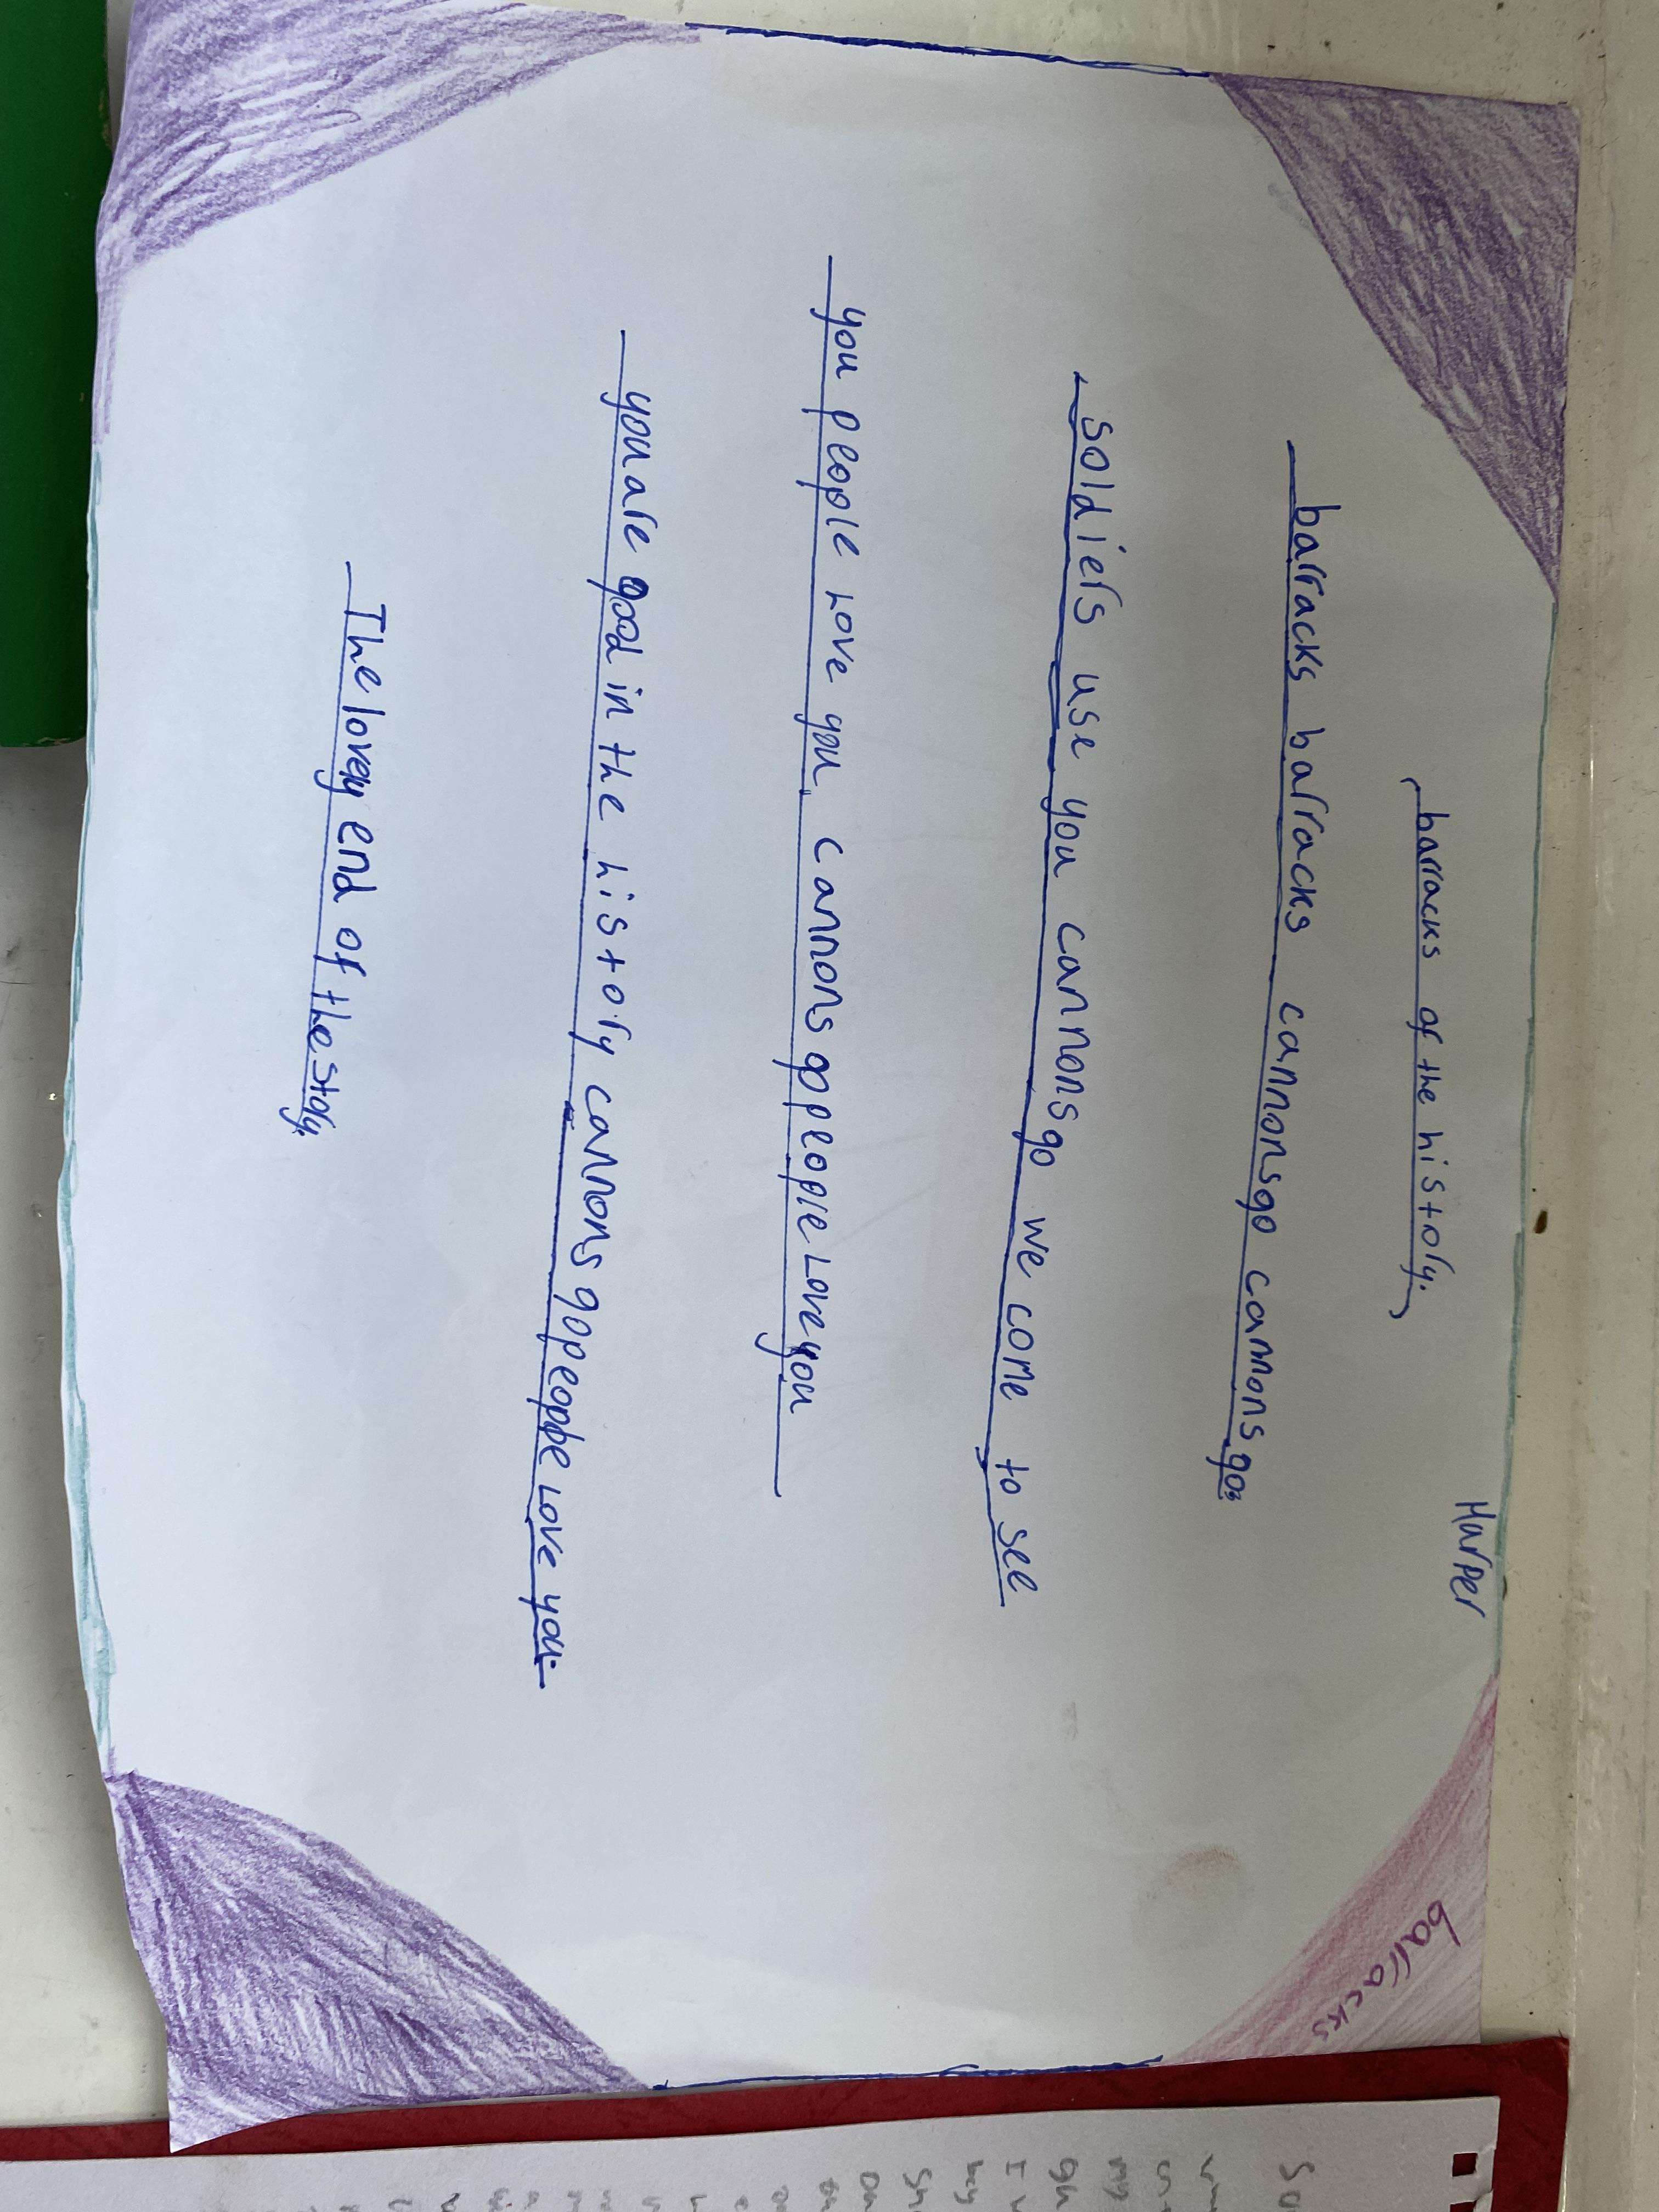 Harper
barracks
barracks of the history.
barracks barracks cannons go cannons go.
soldiers use you cannons go we come to see
you people Love you cannons go people Love you
you are good in the history cannons go people Love you.
The lovely end of the story.